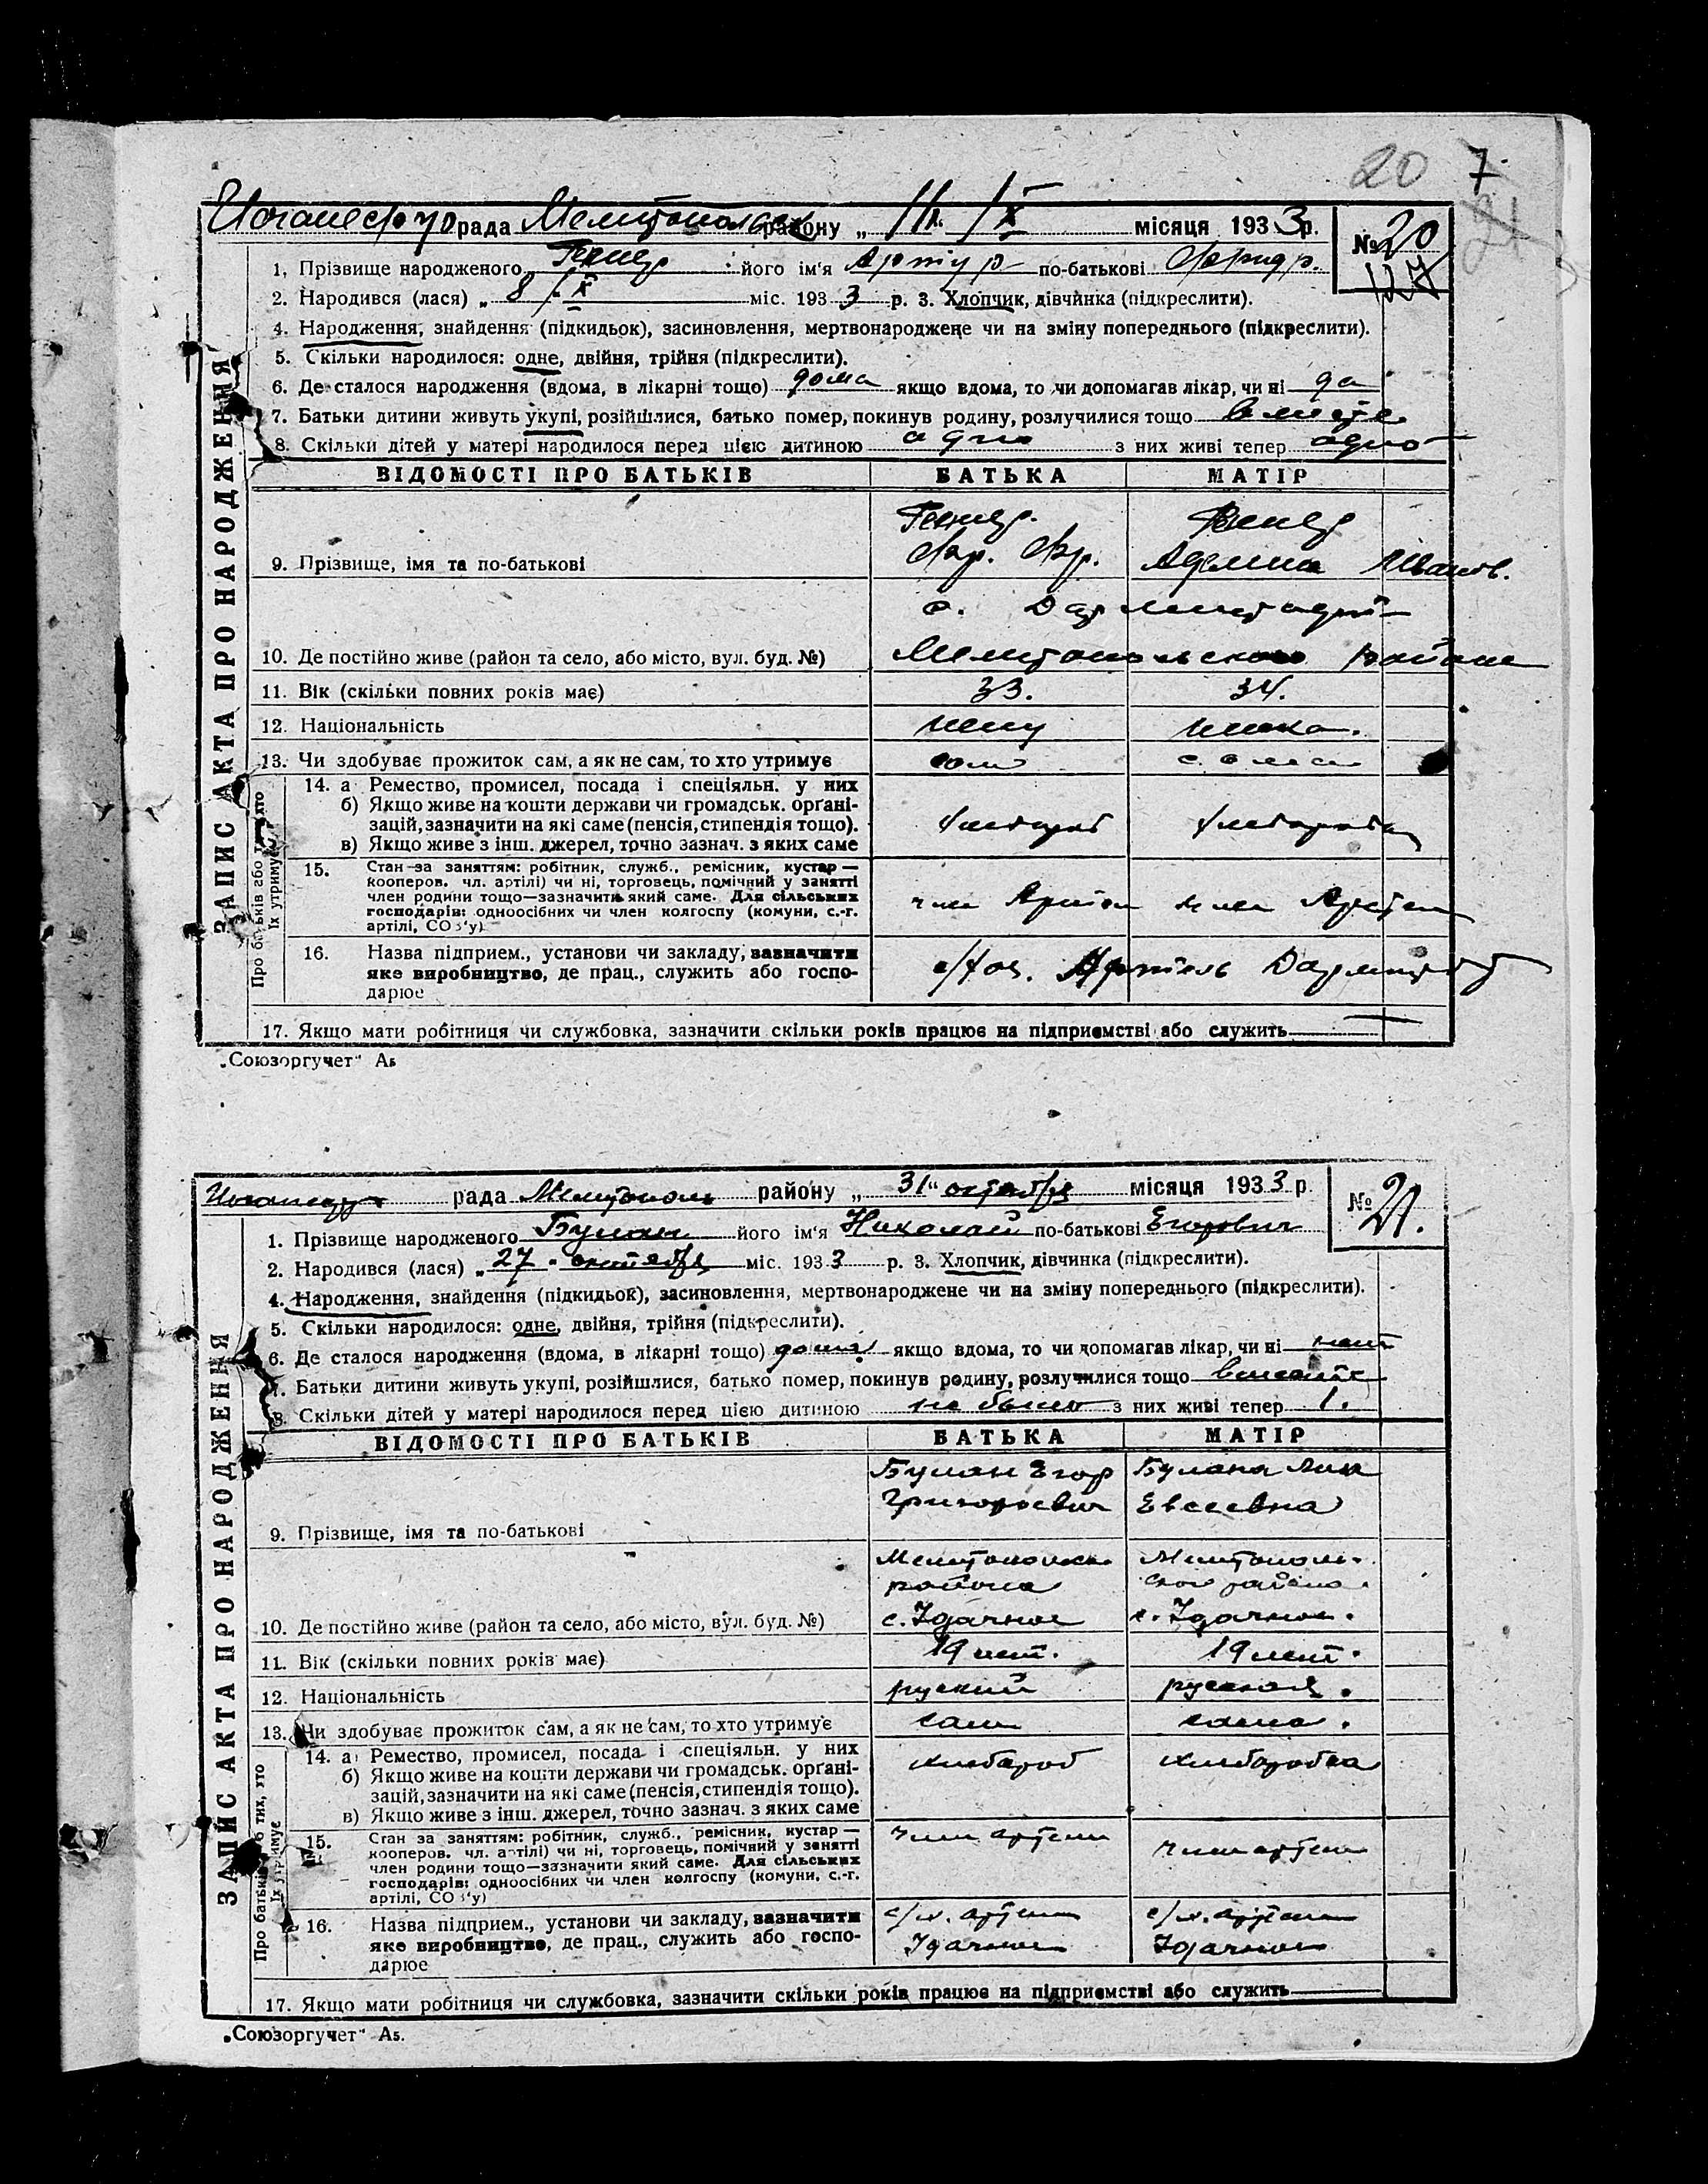 20 7.
21
рада Мелитопольск району „11" /X місяця 1933 р. № 20
127
1. Прізвище народженого його ім'я Артур по-батькові Фридр.
2. Народився (лася) „8/X міс. 1933 р. 3. Хлопчик, дівчинка (підкреслити).
4. Народження, знайдення (підкидьок), засиновлення, мертвонароджене чи на зміну попереднього (підкреслити).
5. Скільки народилося: одне, двійня, трійня (підкреслити).
6. Де сталося народження (вдома, в лікарні тощо) дома якщо вдома, то чи допомагав лікар, чи ні да
7. Батьки дитини живуть укупі, розійшлися, батько помер, покинув родину, розлучилися тощо вместе
8. Скільки дітей у матері народилося перед цією дитиною одно з них живі тепер одно
ЗАПИС АКТА ПРО НАРОДЖЕННЯ
ВІДОМОСТІ ПРО БАТЬКІВ БАТЬКА МАТІР
9. Прізвище, імя та по-батькові Фр. Фр. Аделина Иванов.
с. Дармштадт
10. Де постійно живе (район та село, або місто, вул. буд. №) Мелитопольского района
11. Вік (скільки повних років має) 33. 34.
12. Національність немец немка.
13. Чи здобуває прожиток сам, а як не сам, то хто утримує сам сама
Про батьків або тих, хто їх утримує
14. а) Ремество, промисел, посада і спеціяльн. у них
б) Якщо живе на кошти держави чи громадськ. орґані-
зацій, зазначити на які саме (пенсія, стипендія тощо). хлебороб хлеборобка
в) Якщо живе з інш. джерел, точно зазнач. з яких саме
15. Стан за заняттям: робітник, служб., ремісник, кустар —
кооперов. чл. артілі) чи ні, торговець, помічний у занятті
член родини тощо—зазначить який саме. Для сільських член Артели член Артели
господарів: одноосібних чи член колгоспу (комуни, с.-г.
артілі, СОЗ'у)
16. Назва підприєм., установи чи закладу, зазначити
яке виробництво, де прац., служить або госпо- с/хоз. Артель Дармштадт
дарює
17. Якщо мати робітниця чи службовка, зазначити скільки років працює на підприємстві або служить
„Союзоргучет" А5
рада Мелитополь району „31" октября місяця 1933 р. № 21.
1. Прізвище народженого Булан його ім'я Николай по-батькові Егорович
2. Народився (лася) „27" октября міс. 1933 р. 3. Хлопчик, дівчинка (підкреслити).
4. Народження, знайдення (підкидьок), засиновлення, мертвонароджене чи на зміну попереднього (підкреслити).
5. Скільки народилося: одне, двійня, трійня (підкреслити).
6. Де сталося народження (вдома, в лікарні тощо) дома якщо вдома, то чи допомагав лікар, чи ні нет
7. Батьки дитини живуть укупі, розійшлися, батько помер, покинув родину, розлучилися тощо вместе
8. Скільки дітей у матері народилося перед цією дитиною не было з них живі тепер 1.
ЗАПИС АКТА ПРО НАРОДЖЕННЯ
ВІДОМОСТІ ПРО БАТЬКІВ БАТЬКА МАТІР
Булан Егор Булана
Григорьевич Евсеевна
9. Прізвище, імя та по-батькові
Мелитопольск Мелитополь-
района ского района.
10. Де постійно живе (район та село, або місто, вул. буд. №) с. Удачное с. Удачное.
11. Вік (скільки повних років має) 19 лет. 19 лет.
12. Національність руский руская.
13. Чи здобуває прожиток сам, а як не сам, то хто утримує сам сама.
Про батьків або тих, хто їх утримує
14. а) Ремество, промисел, посада і спеціяльн. у них хлебороб хлеборобка
б) Якщо живе на кошти держави чи громадськ. орґані-
зацій, зазначити на які саме (пенсія, стипендія тощо).
в) Якщо живе з інш. джерел, точно зазнач. з яких саме
15. Стан за заняттям: робітник, служб., ремісник, кустар — член артели член артели
кооперов. чл. артілі) чи ні, торговець, помічний у занятті
член родини тощо—зазначити який саме. Для сільських
господарів: одноосібних чи член колгоспу (комуни, с.-г.
артілі, СОЗ'у)
16. Назва підприєм., установи чи закладу, зазначити с/х. артель с/х. артель
яке виробництво, де прац., служить або госпо- Удачное Удачное
дарює
17. Якщо мати робітниця чи службовка, зазначити скільки років працює на підприємстві або служить
„Союзоргучет" А5.